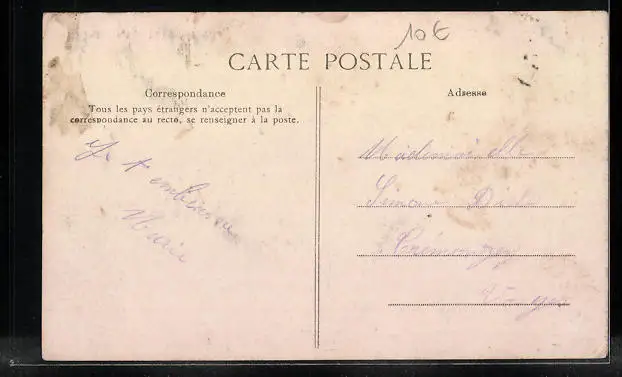 10€
CARTE POSTALE
Correspondance
Tous les pays étrangers n'acceptent pas la
correspondance au recto, se renseigner à la poste.
Adresse
Je t'embrasse
Marie
Mademoiselle
Simone
Vosges